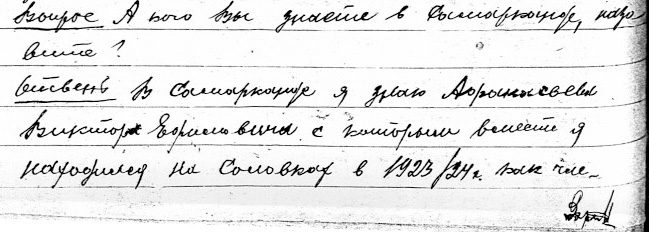 Вопрос А кого Вы знаете в Самарканде, назо
вите?
Ответ В Самарканде я знаю Афанасьева
Виктора с которым вместе я
находился на Соловках в 1923/24 г. как чле-